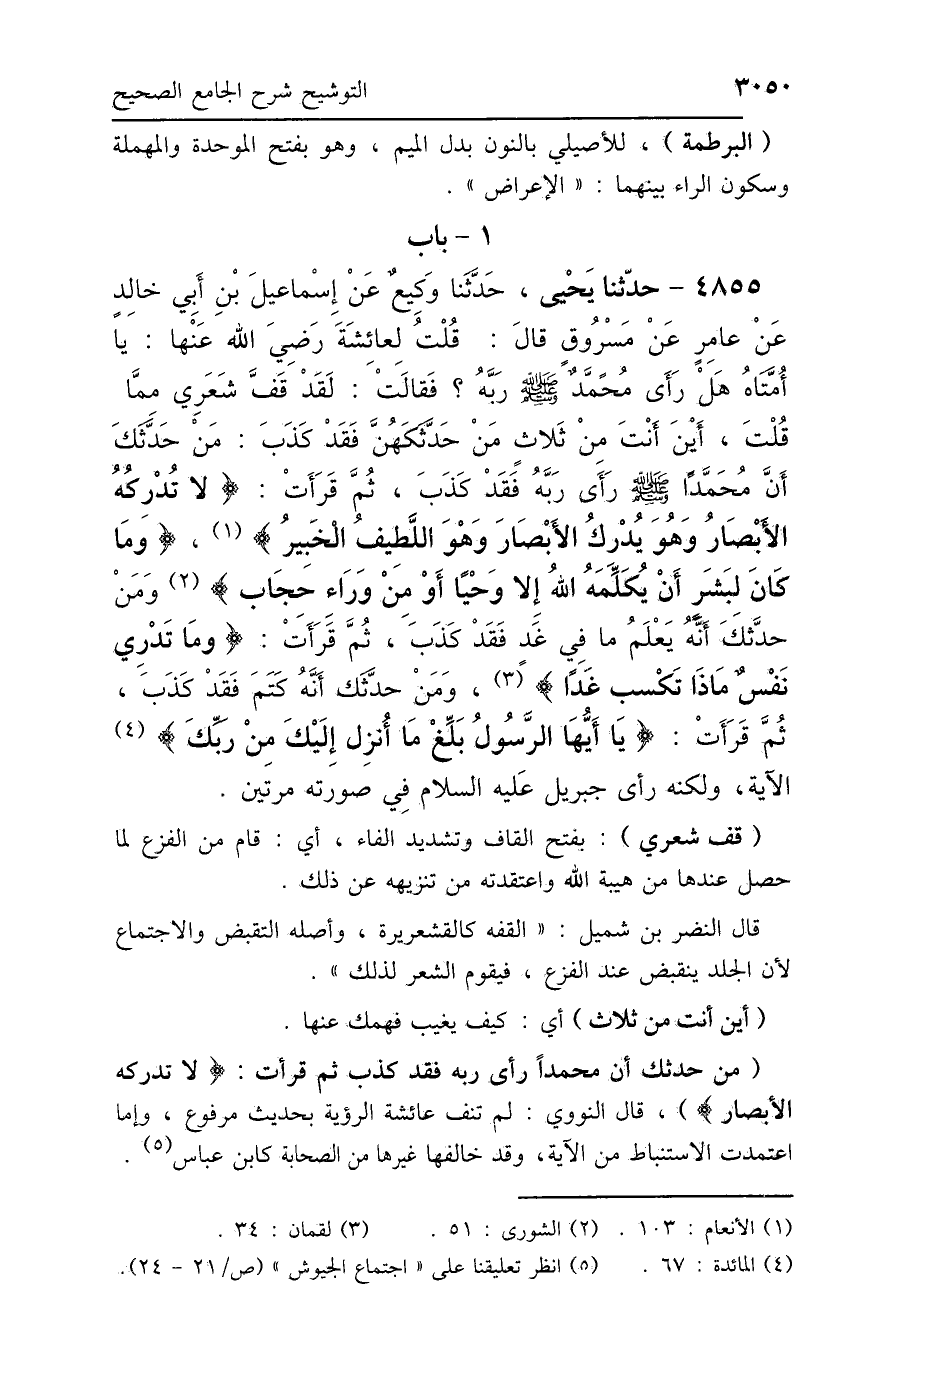 ٣٠٥٠ التوشيح شرح الجامع الصحيح
( البرطمة ) ، للأصيلي بالنون بدل الميم ، وهو بفتح الموحدة والمهملة
وسكون الراء بينهما : « الإعراض » .
١ - باب
٤٨٥٥ - حدّثنا يَحْيى ، حَدَّثَنا وَكِيعٌ عَنْ إِسْماعيلَ بْنِ أَبي خالِدٍ
عَنْ عامِرٍ عَنْ مَسْرُوقٍ قالَ : قُلْتُ لعائشَةَ رَضيَ الله عَنْها : يا
أُمَّتَاهُ هَلْ رَأَى مُحَمَّدٌ ﷺ رَبَّهُ ؟ فَقالَتْ : لَقَدْ قَفَّ شَعَري ممَّا
قُلْتَ ، أَيْنَ أَنْتَ مِنْ ثَلاثٍ مَنْ حَدَّثَكَهُنَّ فَقَدْ كَذَبَ : مَنْ حَدَّثَكَ
أَنَّ مُحَمَّدًا ﷺ رَأَى رَبَّهُ فَقَدْ كَذَبَ ، ثُمَّ قَرَأَتْ : ﴿ لا تُدْركُهُ
الأَبْصَارُ وَهُوَ يُدْركُ الأَبْصَارَ وَهْوَ اللَّطيفُ الْخَبيرُ ﴾ (١) ، ﴿ وَمَا
كَانَ لبَشَرٍ أَنْ يُكَلِّمَهُ اللهُ إلا وَحْيًا أَوْ مِنْ وَرَاء حجَاب ﴾ (٢) وَمَنْ
حدَّثَكَ أَنَّهُ يَعْلَمُ ما في غَدٍ فَقَدْ كَذَبَ ، ثُمَّ قَرَأَتْ : ﴿ وما تَدْرِي
نَفْسٌ مَاذَا تَكْسب غَدًا ﴾ (٣) ، وَمَنْ حدَّثَك أَنَّهُ كَتَمَ فَقَد كَذَبَ ،
ثُمَّ قَرَأَتْ : ﴿ يَا أَيُّهَا الرَّسُولُ بَلِّغْ مَا أُنزل إِلَيْكَ مِنْ رَبِّكَ ﴾ (٤)
الآية ، ولكنه رأى جبريل عَليه السلام فِي صورته مرتين .
( قف شعري ) : بفتح القاف وتشديد الفاء ، أي : قام من الفزع لما
حصل عندها من هيبة الله واعتقدته من تنزيهه عن ذلك .
قال النضر بن شميل : « القفه كالقشعريرة ، وأصله التقبض والاجتماع
لأن الجلد ينقبض عند الفزع ، فيقوم الشعر لذلك » .
( أين أنت من ثلاث ) أي : كيف يغيب فهمك عنها .
( من حدثك أن محمداً رأى ربه فقد كذب ثم قرأت : ﴿ لا تدركه
الأبصار ﴾ ) ، قال النووي : لم تنف عائشة الرؤية بحديث مرفوع ، وإما
اعتمدت الاستنباط من الآية، وقد خالفها غيرها من الصحابة كابن عباس(٥) .
(١) الأنعام : ١٠٣ . (٢) الشورى : ٥١ . (٣) لقمان : ٣٤ .
(٤) المائدة : ٦٧ . (٥) انظر تعليقنا على « اجتماع الجيوش » (ص/٢١ - ٢٤).